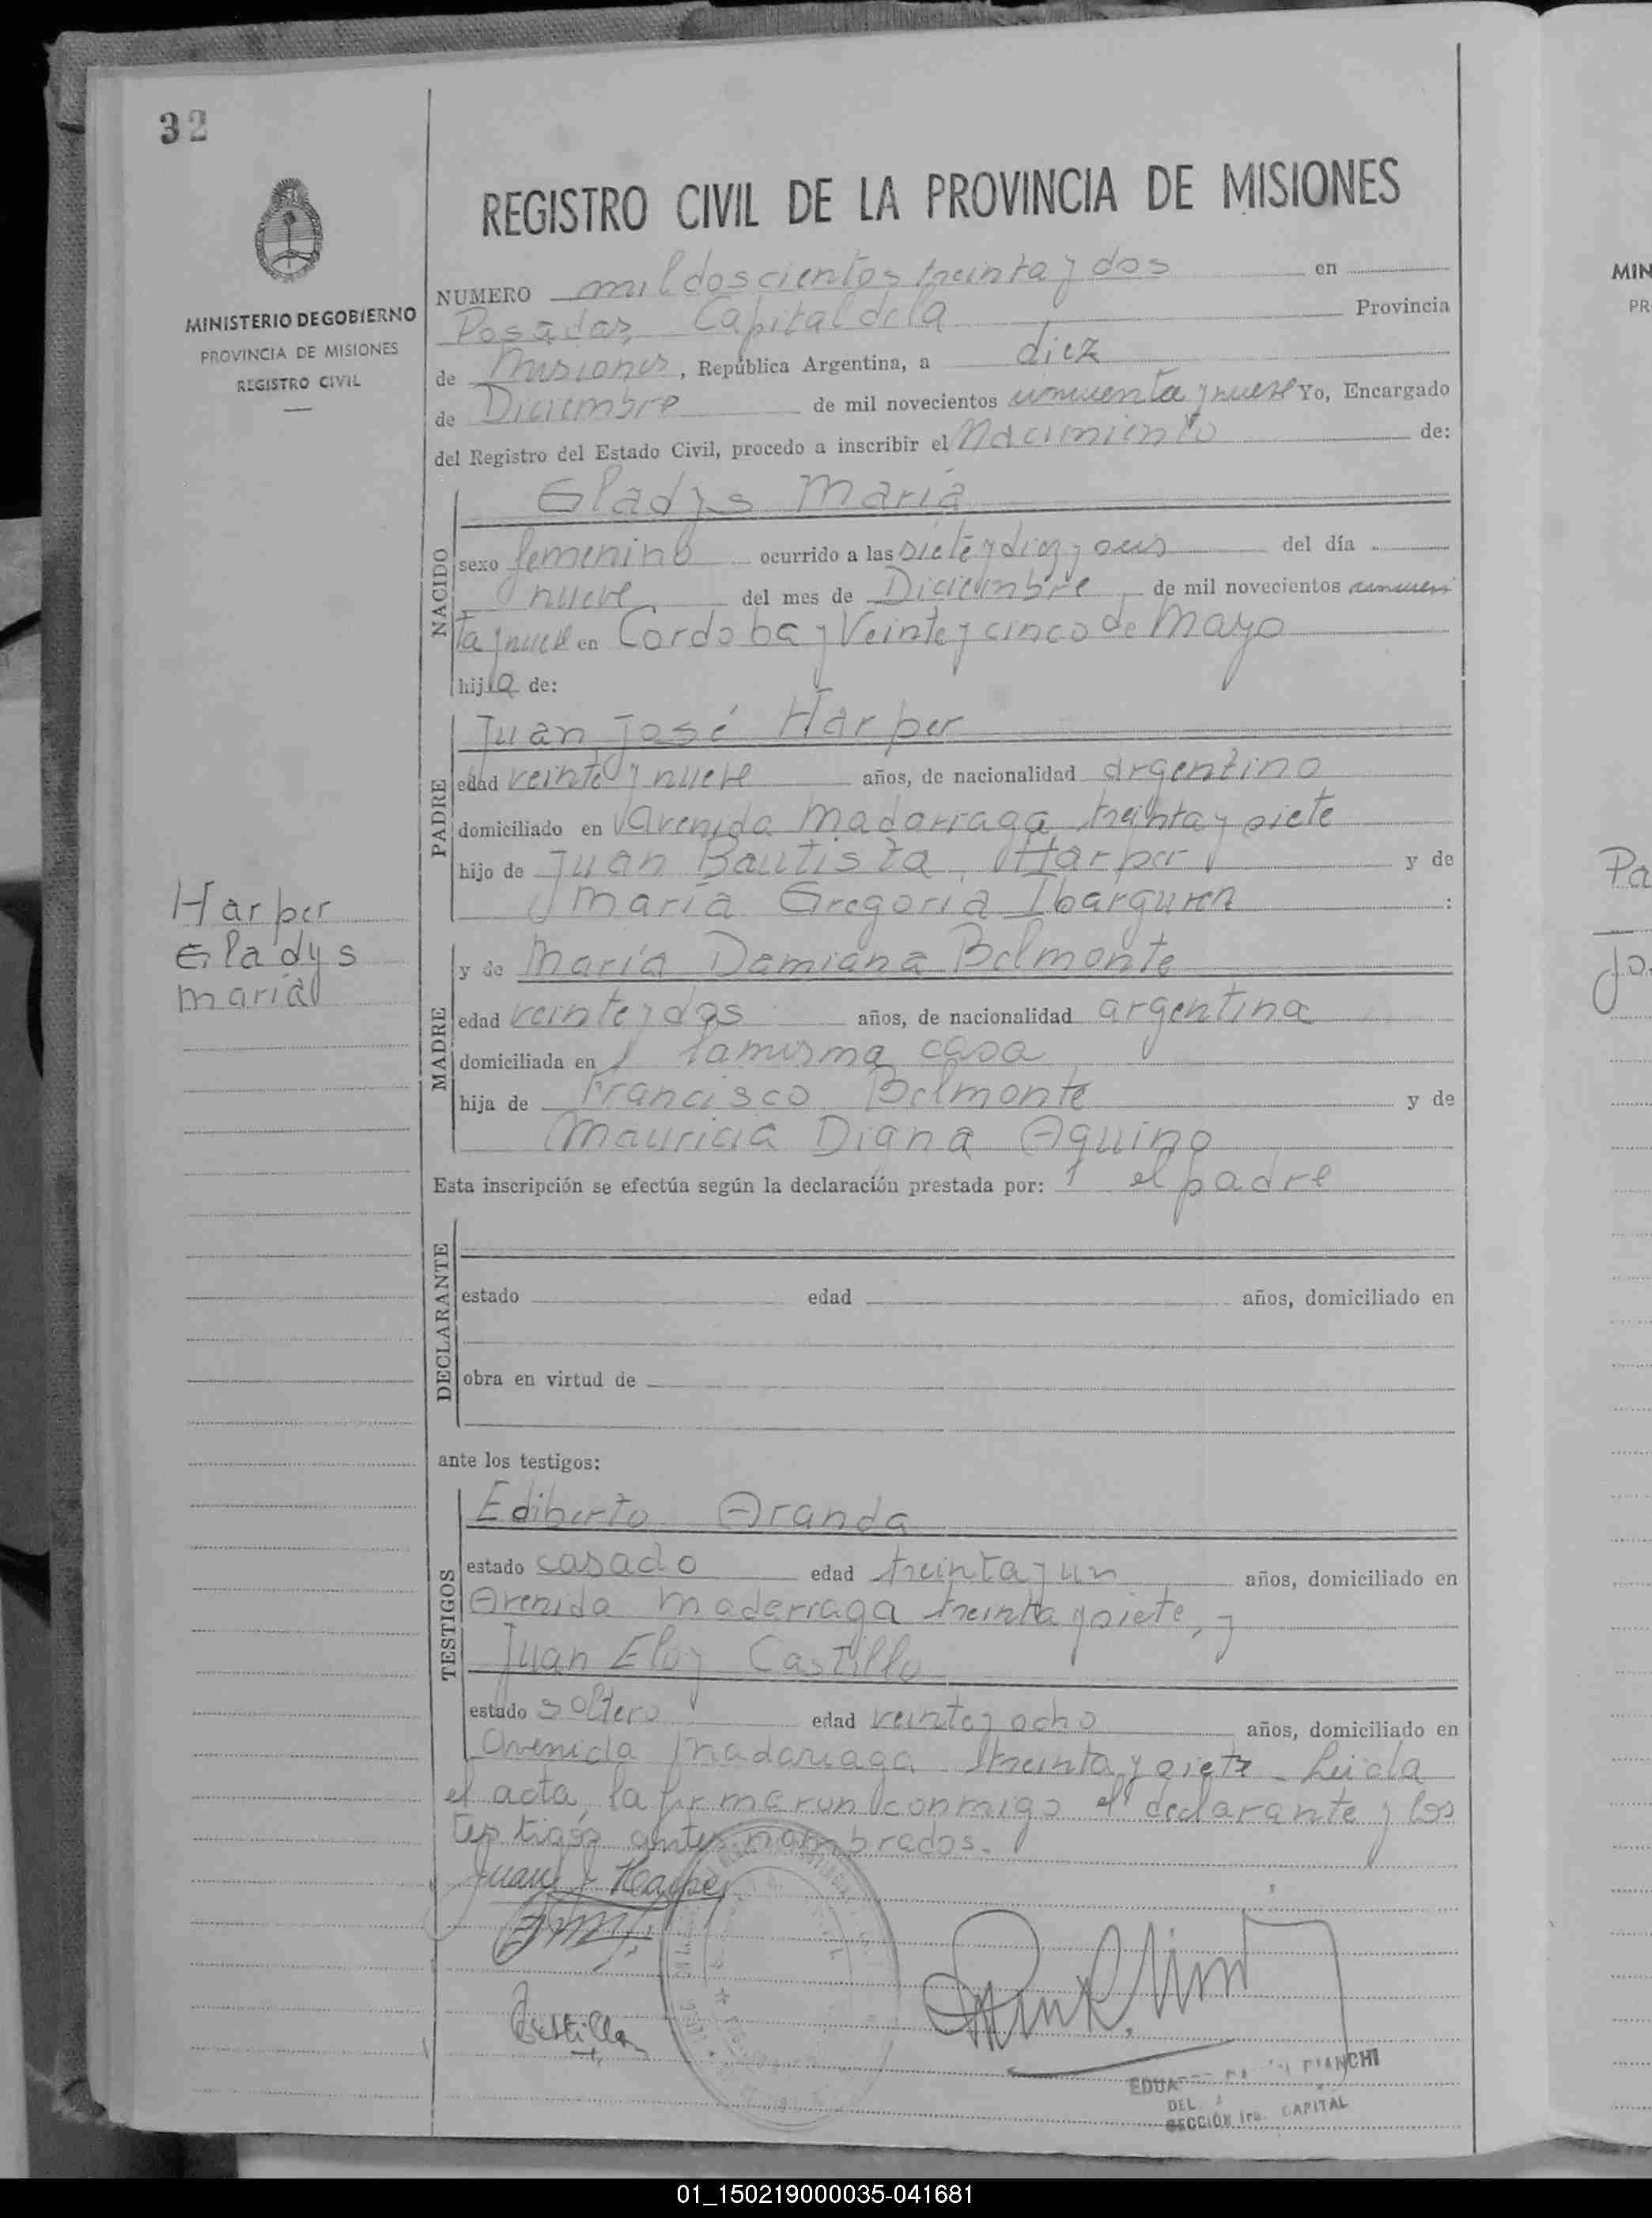 32
REGISTRO CIVIL DE LA PROVINCIA DE MISIONES
MINISTERIO DE GOBIERNO
PROVINCIA DE MISIONES
REGISTRO CIVIL
NUMERO mil doscientos treinta y dos en
Posadas, Capital de la Provincia
de Misiones, República Argentina, a diez
de Diciembre de mil novecientos cincuenta y nueve Yo, Encargado
del Registro del Estado Civil, procedo a inscribir el Nacimiento de:
NACIDO
Gladys Maria
sexo femenino ocurrido a las siete y diez y seis del día
nueve del mes de Diciembre de mil novecientos cincuen
ta y nueve en Cordoba y Veinte y cinco de Mayo
hija de:
PADRE
Juan José Harper
edad veinte y nueve años, de nacionalidad argentino
domiciliado en Avenida Madarriaga treinta y siete
hijo de Juan Bautista Harper y de
María Gregoria Ibarguren :
Harper
Gladys
maria
MADRE
y de María Damiana Belmonte
edad veinte y dos años, de nacionalidad argentina
domiciliada en la misma casa
hija de Francisco Belmonte y de
Mauricia Diana Aquino
Esta inscripción se efectúa según la declaración prestada por: el padre
DECLARANTE
estado edad años, domiciliado en
obra en virtud de
ante los testigos:
TESTIGOS
Ediberto Aranda
estado casado edad treinta y un años, domiciliado en
Avenida Maderraga treinta y siete, y
Juan Eloy Castillo
estado soltero edad veinte y ocho años, domiciliado en
Avenida Madariaga treinta y siete - Leída
el acta, la firmaron conmigo el declarante y los
testigos antes nombrados.-
Juan J Harper
Castillo
BIANCHI
DEL
SECCIÓN 1ra. CAPITAL
MIN
PR
Pa
Jo
01_150219000035-041681